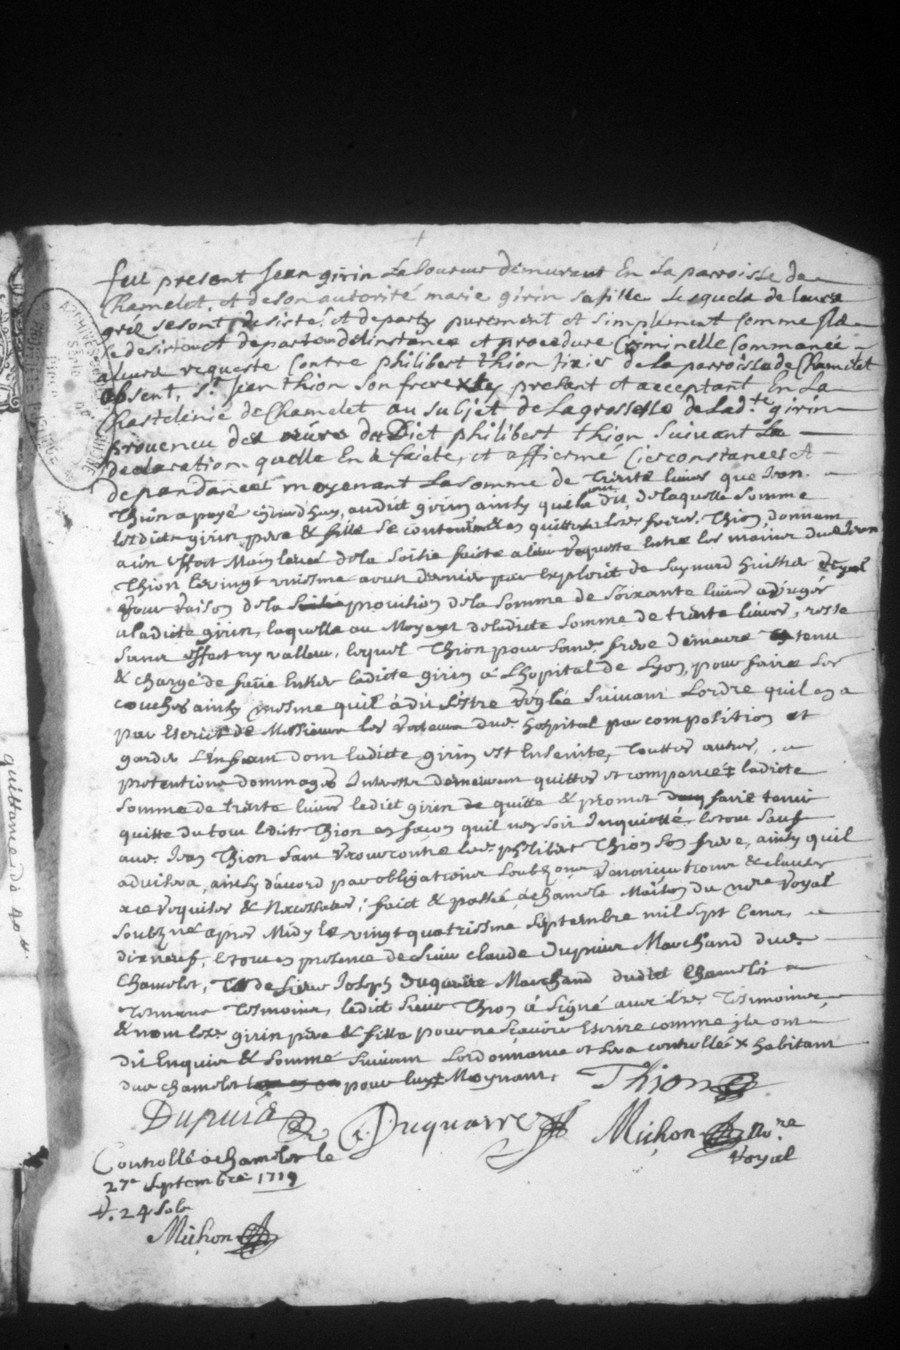 fut present Jean girin Laboureur demurant En La parroisse de
Chamelet, et de son autorité marie girin sa fille Lesquels de leurs
grés se sont desisté, et departy purement et simplement comme ils
se desistent et departent de linstance et procedure Criminelle Commancé
a leur requeste Contre philibert thion tixier de la parroisse de Chamelet
absent, Sr Jean thion son frere x Icy present et acceptant En La
Chastelenie de Chamelet au subjet de La grossesse de Ladte girin
proveneu des œuvre dudict philibert thion suivant La
declaration quelle En à faicte, et affirmé Circonstances et
dependances moyenant La somme de trente livres que Jean
Thion a payé cejourdhuy, audict girin ainsy quil la dit, de laquelle somme
lesdicts girin pere & fille se contentent et en quittent les freres Thion, donnant
a cet effect Main levée de la saisie faicte a leur requeste Entre les mains dud. Jean
Thion le vingt unisme aoust dernier par exploit de Huissier Royal
pour raison de la provition de la somme de soixante livres adjugés
a ladicte girin, laquelle au Moyen de ladicte somme de trente livres, reste
sans effect ny valleur, lequel Thion pour sond. frere demeure tenu
& chargé de faire Entrer ladicte girin à Lhopital de Lyon, pour faire ses
couches ainsy mesme quil à dit sestre reglée suivant Lordre quil en a
par Escript de Messieurs les Recteurs dud. hospital par composition et
garder L'enfant dont ladicte girin est Enseinte, Touttes autres
pretentions dommages Interests demeurant quittes et compencé ladicte
somme de trente livres ledict girin de quitte & promet faire tenir
quitte du tout ledict Thion en façon quil nen soit Inquietté, le tout sauf
aud. Jean Thion son recour contre led. philibert Thion son frere, ainsy quil
advisera, ainsy d'acord par obligations soubzmissions renonciations & clauses
a ce requises & Necessaires; faict & passé, à chamelet Maison du nore royal
soubzné apres Midy le vingt quatriesme septembre mil sept Cens
dix neuf, le tout en presence de sieur claude Dupuier Marchand dud.
Chamelet, & de sieur Joseph Duquaire Marchand dudict Chamelet
tesmoins, ledict sieur Thion à signé avec lesd. Tesmoins
& non lesd. girin pere & fille pour ne scavoir Escrire comme ils ont
dit Enquis & sommé suivant Lordonnance et sera controllé x habitant
dud chamelet pour luy Moyenant
Thion
Dupuié Duquaire Michon nore
royal
Controllé à chamelet le
27e septembre 1719
R. 24 sols
Michon
quittance de 30lt